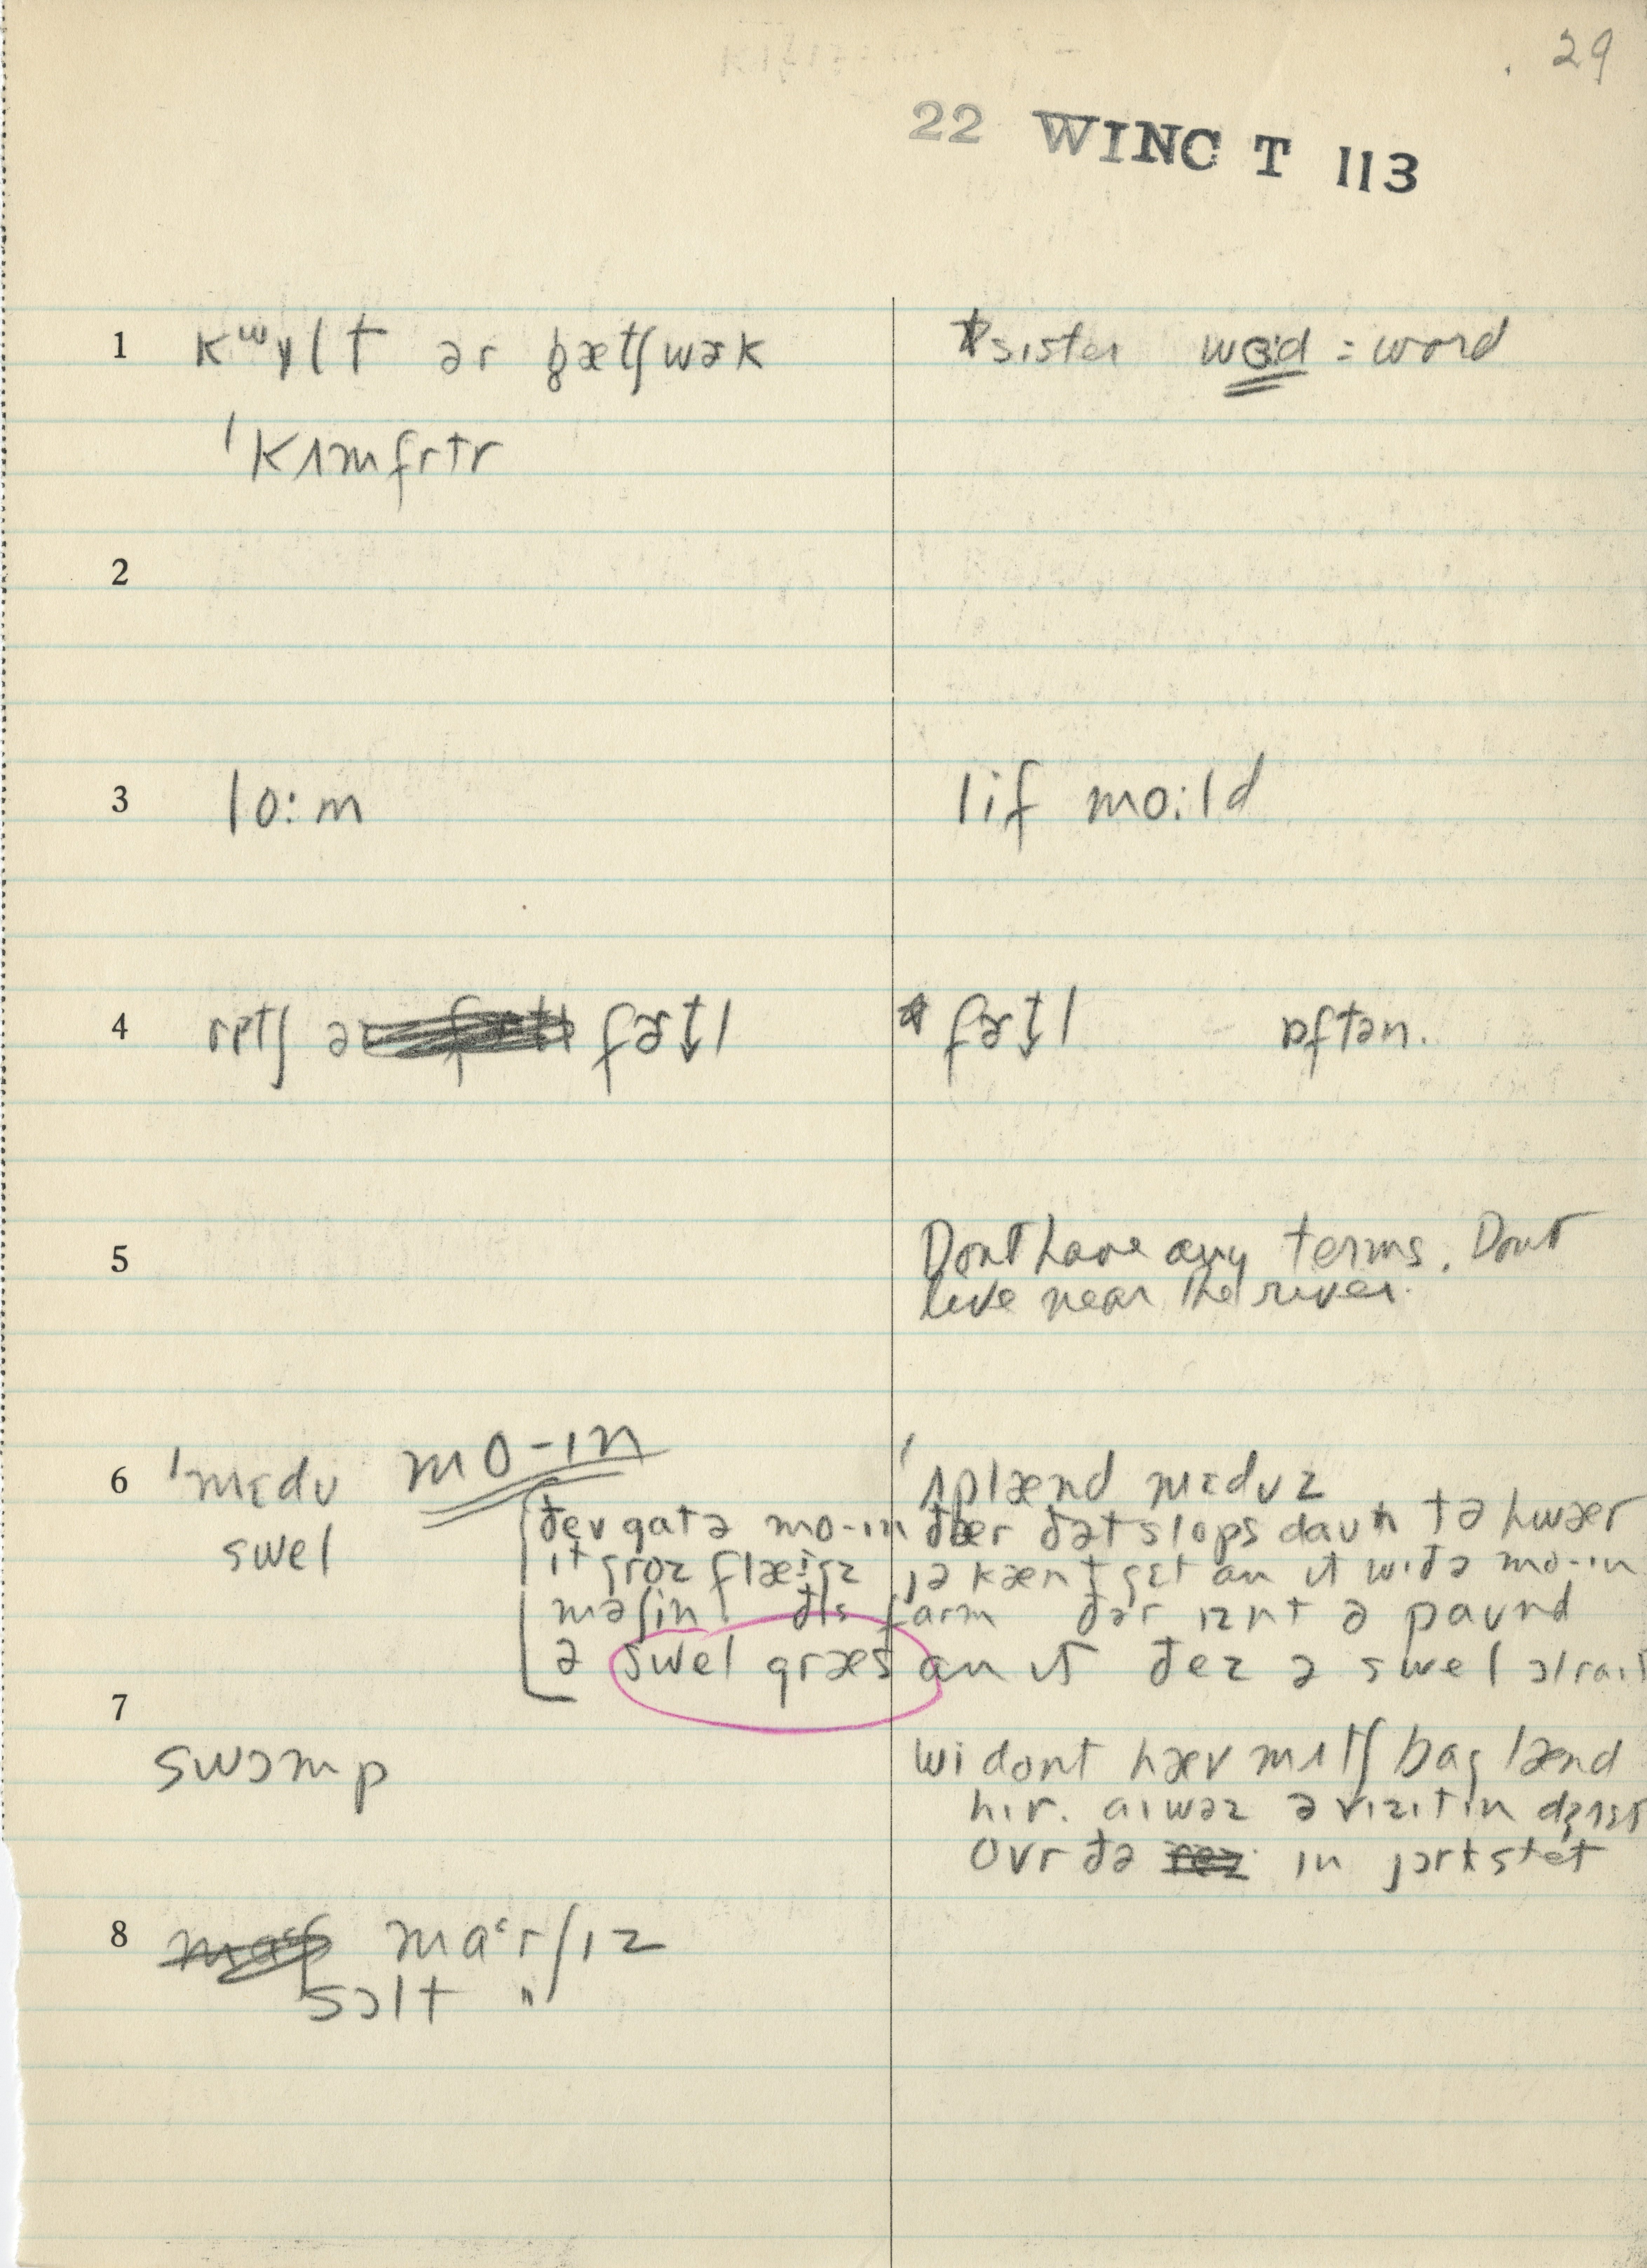 29
22 WINC T 113
1 kʷɪlt ər pætʃwək *sister wɜːd = word
ˈkʌmfrtr
2
3 lo:m lif mo:ld
4 rɪtʃ ə fɚt̬l * fɚt̬l ɒftən.
5 Dont have any terms. Dont
live near the river.
6 ˈmɛdʊ mo-ɪn ˈʌplænd mɛdʊz
swel ðeʊ gat ə mo-ɪn ðær ðət slops daʊn tə hwær
ɪt groz flægz jə kænt gɛt an ɪt wɪð ə mo-ɪn
məʃin ðɪs farm ðər ɪznt ə paʊnd
ə swel græs an ɪt ðez ə swel ɔlraɪt
7
swɔmp wi dont hæv mʌtʃ bag lænd
hɪr. aɪ wəz ə vɪzɪtɪn dʒʌst
ovr ðə in jɔrk stet
8 maᵋrʃɪz
sɔlt "